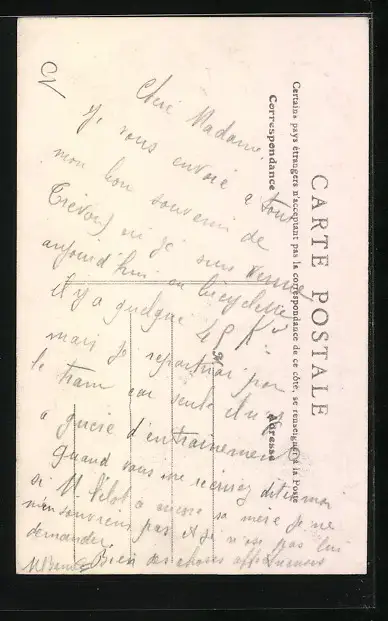 Chère Madame.
Je vous envoie à tous
mon bon souvenir de
Trévoux où je suis venue
aujourd'hui en bicyclette
il y a quelque 45 K
mais je repartirai par
le tram car seule
à guère d'entrainement
quand vous me récrirez dites moi
si M. a encore sa mère je ne
m'en souviens pas et je n'ose pas lui
demander.
Bien des choses affectueuses
CARTE POSTALE
Certains pays étrangers n'acceptant pas la correspondance de ce côté, se renseigner à la Poste
Correspondance
Adresse